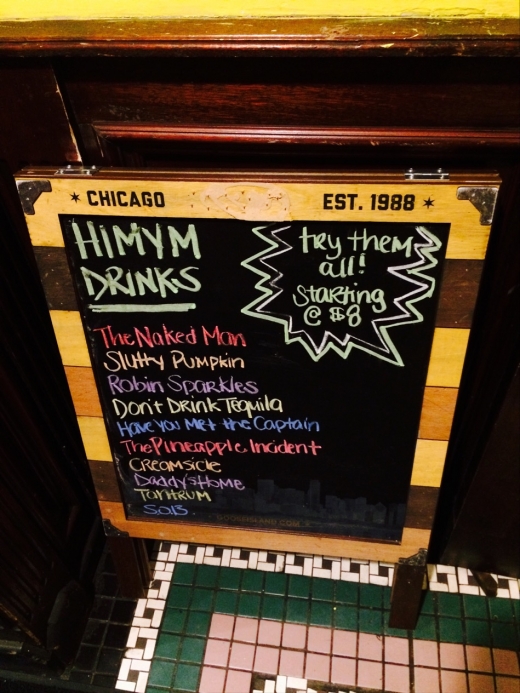 CHICAGO
EST. 1988
HIMYM
DRINKS
try them
all!
Starting
@ $8
The Naked Man
Slutty Pumpkin
Robin Sparkles
Don't Drink Tequila
Have You Met the Captain
The Pineapple Incident
Creamsicle
Daddy's Home
Tantrum
S013